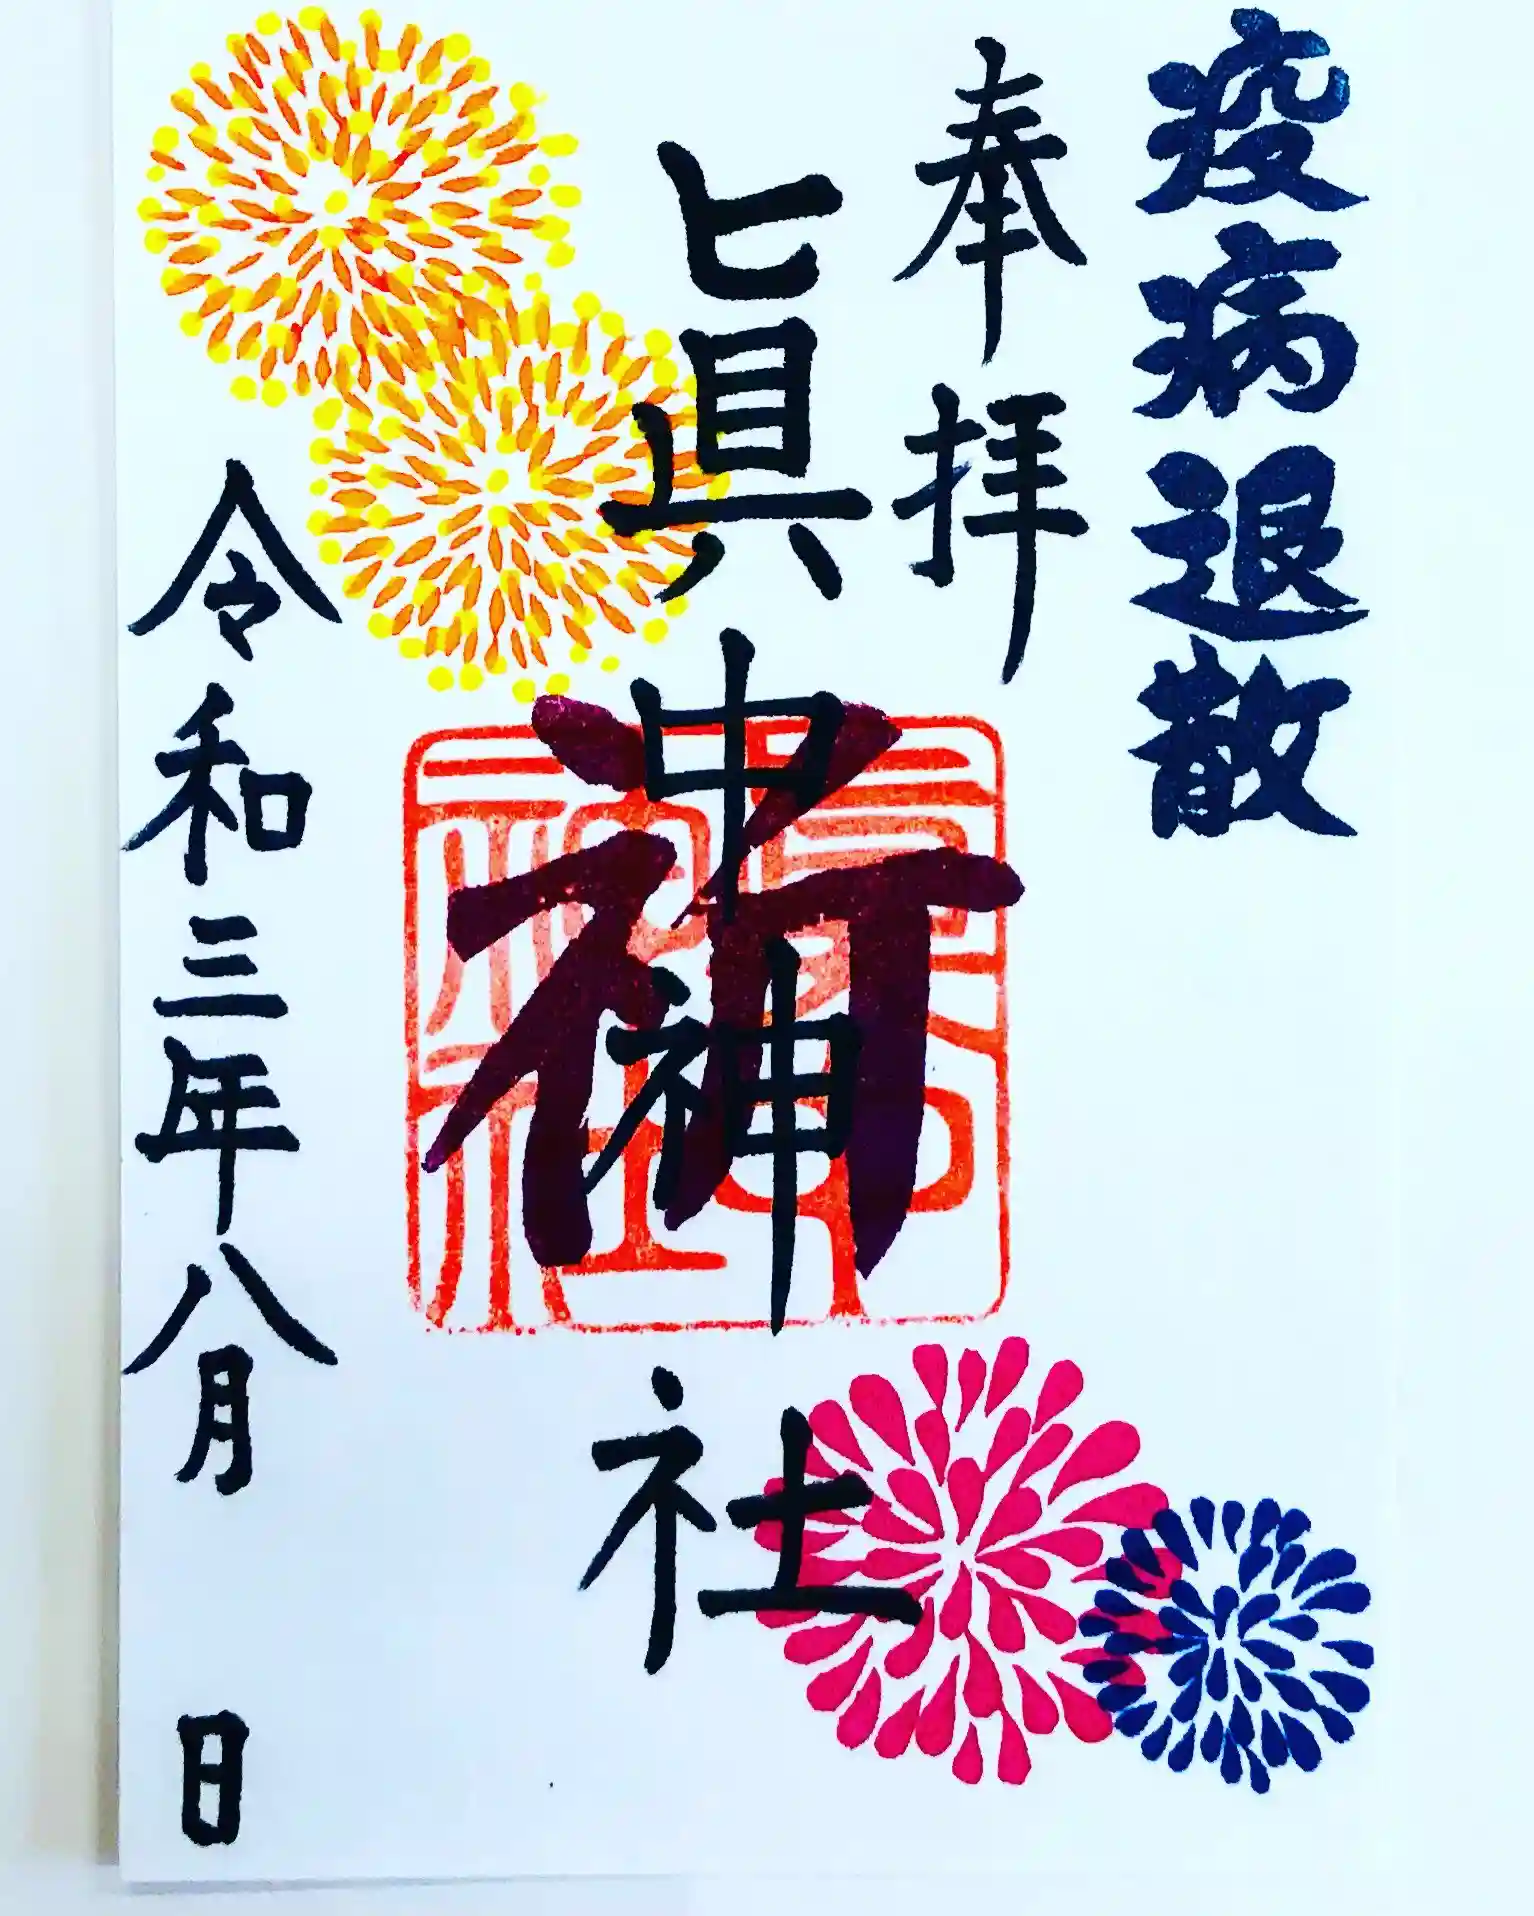 疫病退散
奉拝
眞中神社
令和三年八月 日